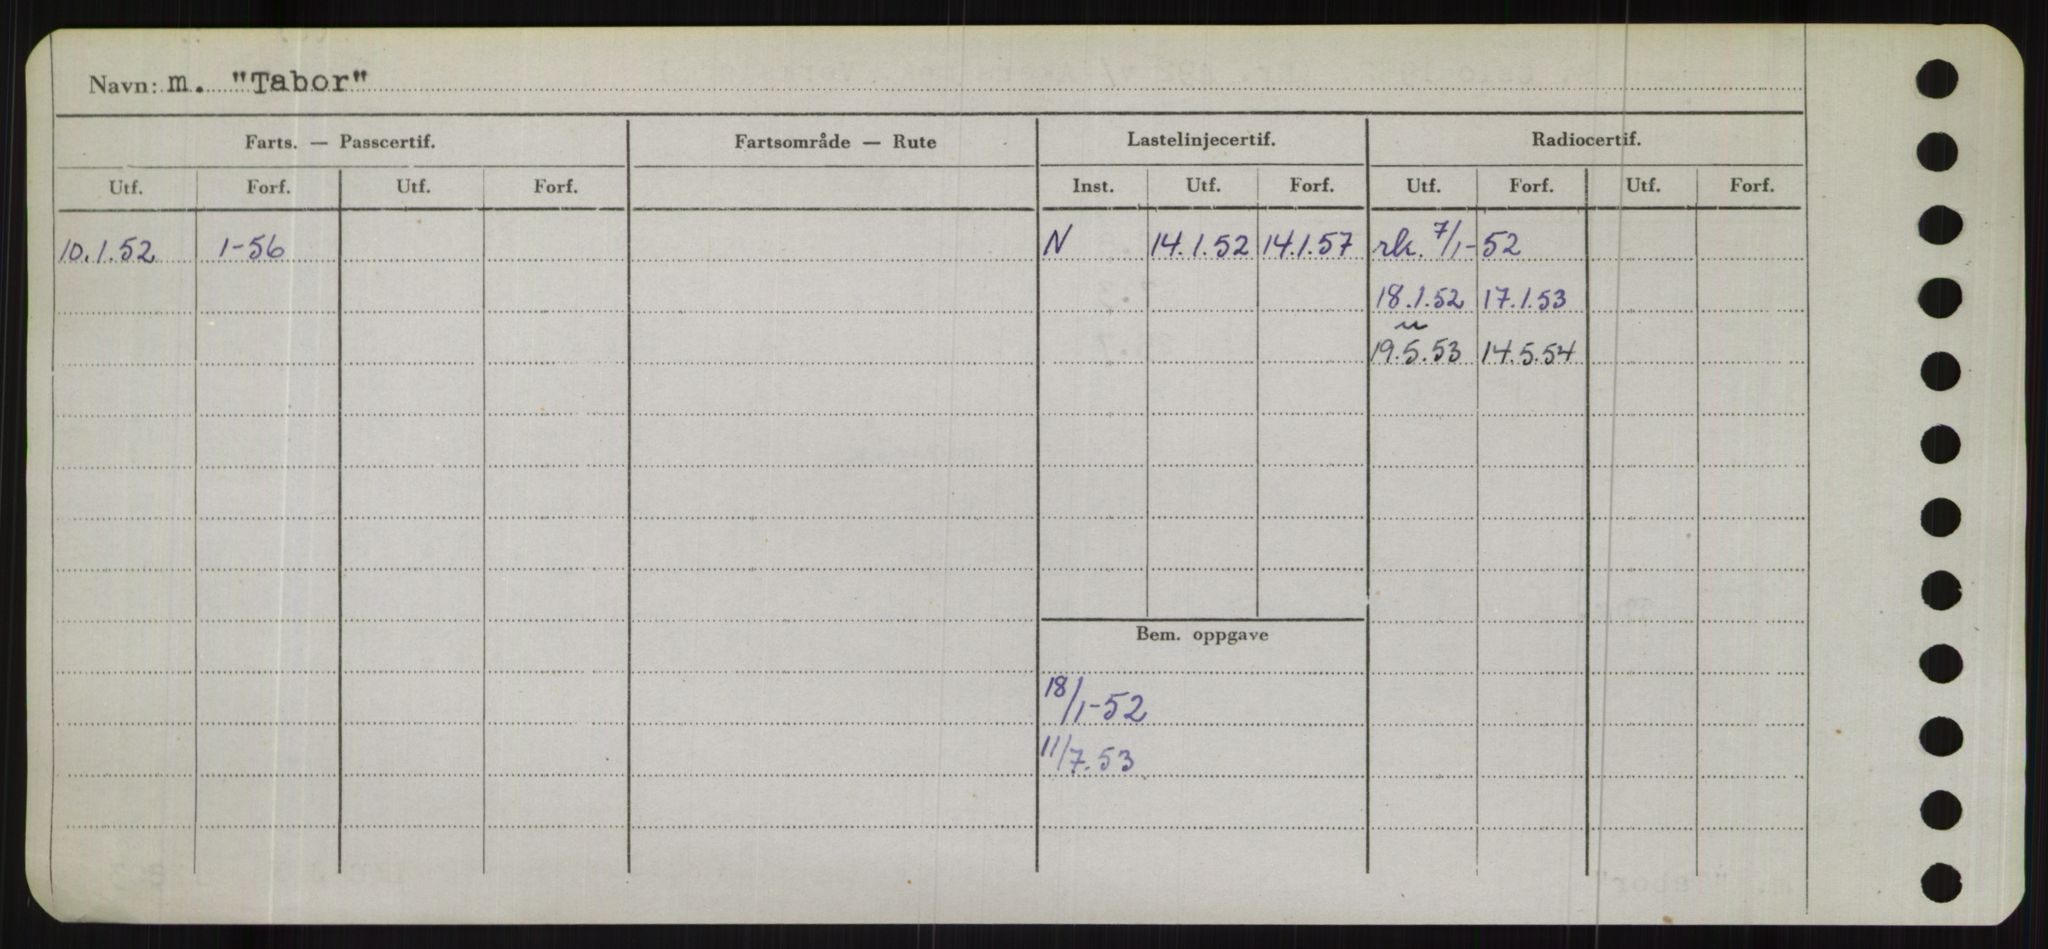 Navn: m. "Tabor"
Farts. — Passcertif. Fartsområde — Rute Lastelinjecertif. Radiocertif.
Utf. Forf. Utf. Forf. Inst. Utf. Forf. Utf. Forf. Utf. Forf.
10.1.52 1-56 N 14.1.52 14.1.57 rk. 7/1-52
18.1.52 17.1.53
19.5.53 14.5.54
Bem. oppgave
18/1-52
11/7.53